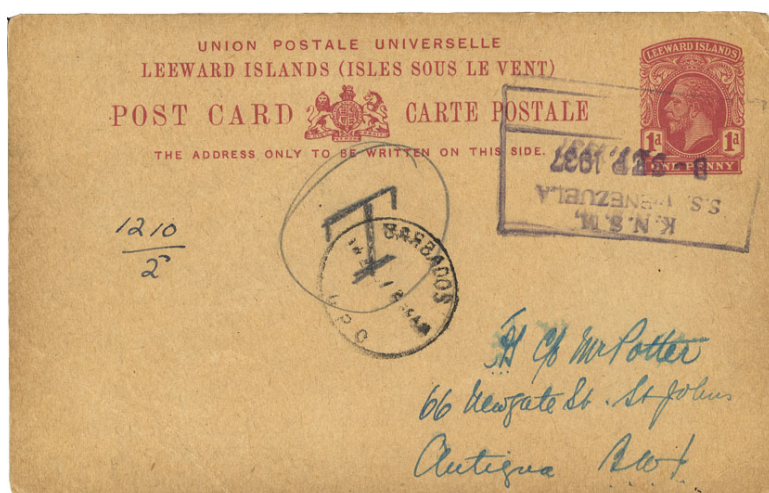 UNION POSTALE UNIVERSELLE
LEEWARD ISLANDS (ISLES SOUS LE VENT)
POST CARD CARTE POSTALE
THE ADDRESS ONLY TO BE WRITTEN ON THIS SIDE.
LEEWARD ISLANDS
1d 1d
ONE PENNY
K. N. S. M.
S.S. VENEZUELA
SEP. 1937
T
BARBADOS
1210
2
C/o Mr Potter
66 Newgate St. St Johns
Antigua B.W.I.